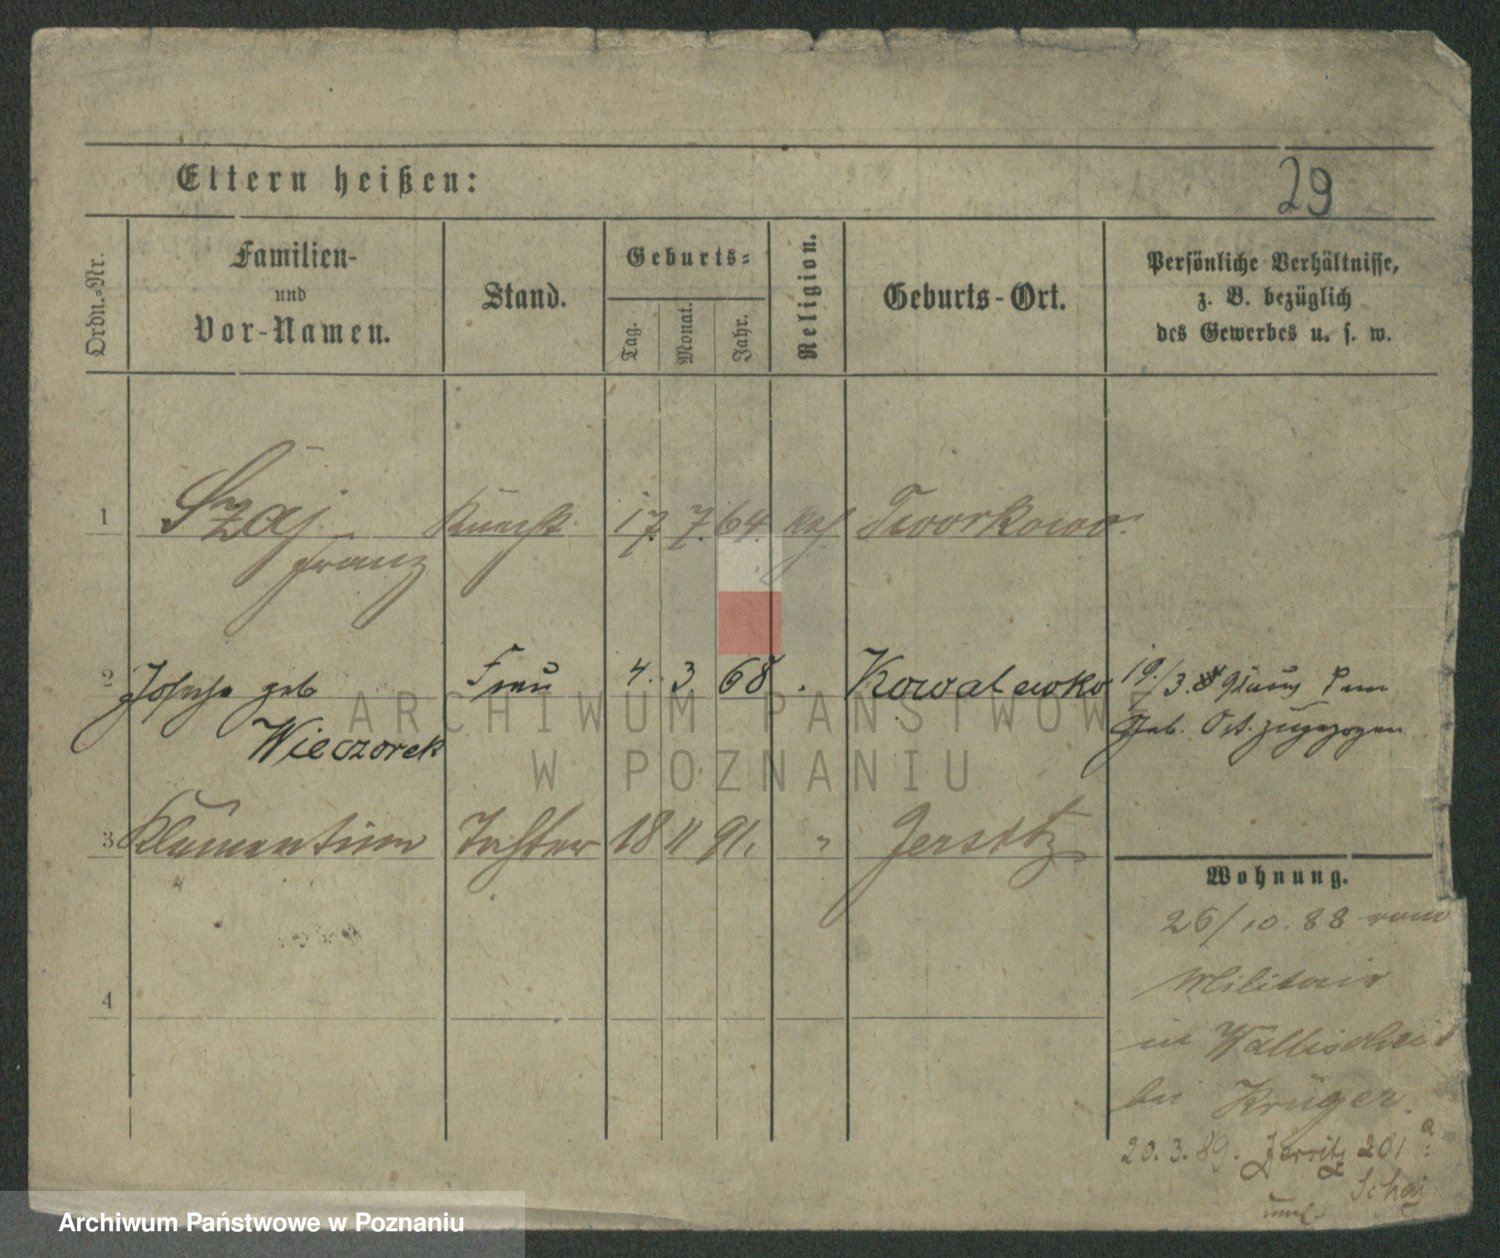 Eltern heißen:
29
Ordn.-Nr.
Familien-
und
Vor-Namen.
Stand.
Geburts-
Tag.
Monat.
Jahr.
Religion.
Geburts-Ort.
Persönliche Verhältnisse,
z. B. bezüglich
des Gewerbes u. s. w.
1 Szaj Knecht 17. 7. 64. kath Tworkowo.
Franz
2 Josepha geb Frau 4. 3 68 Kowalewko 19./3.
Wieczorek
geb. Ort zugezogen
3 Klementine Tochter 18 11 91. " Jersitz
Wohnung.
26/10.88 vom
Militair
in Wallischei
bei Krüger.
20.3.89. Jersitz 201a
4
ARCHIWUM PAŃSTWOWE
W POZNANIU
Archiwum Państwowe w Poznaniu